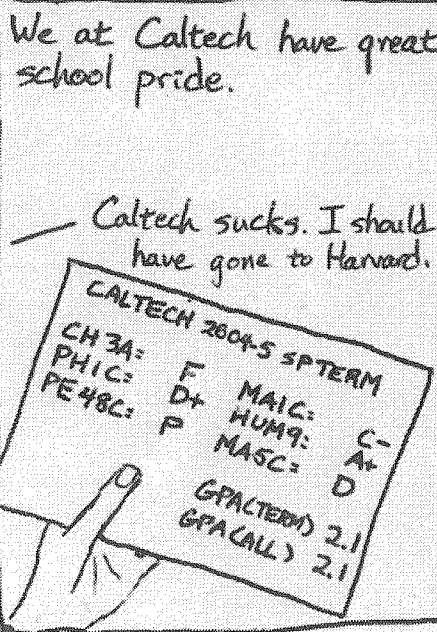 We at Caltech have great
school pride.
Caltech sucks. I should
have gone to Harvard.
CALTECH 2004-5 SPTERM
CH 3A: F MA1C: C-
PH1C: D+ HUM9: A+
PE48C: P MA5C: D
GPA(TERM) 2.1
GPA(ALL) 2.1